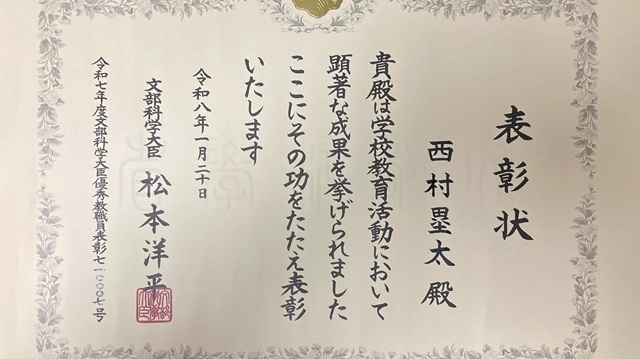 表彰状
西村塁太殿
貴殿は学校教育活動において
顕著な成果を挙げられました
ここにその功をたたえ表彰
いたします
令和八年一月二十日
文部科学大臣 松本洋平
令和七年度文部科学大臣優秀教職員表彰七一〇〇〇七号